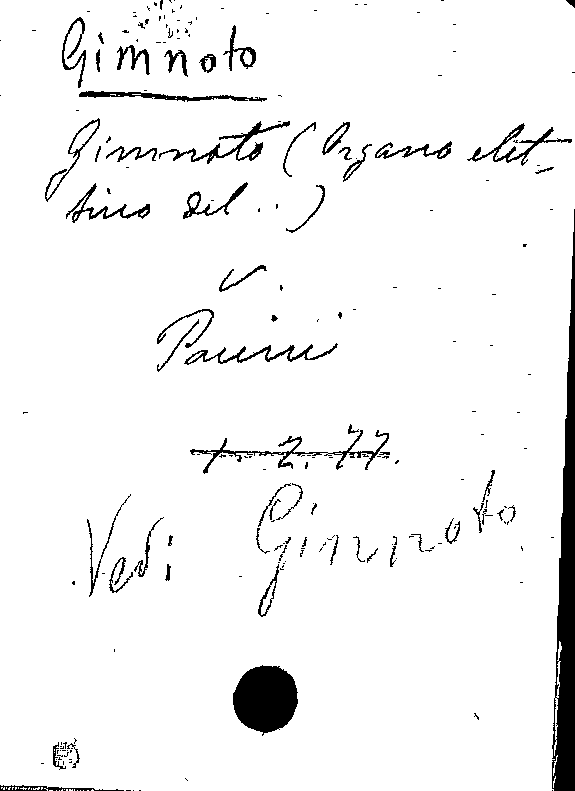 Gimnoto
Gimnoto (Organo elet-
trico del ..)
v.
Pacini
1. 2. 77.
Vedi Ginnoto